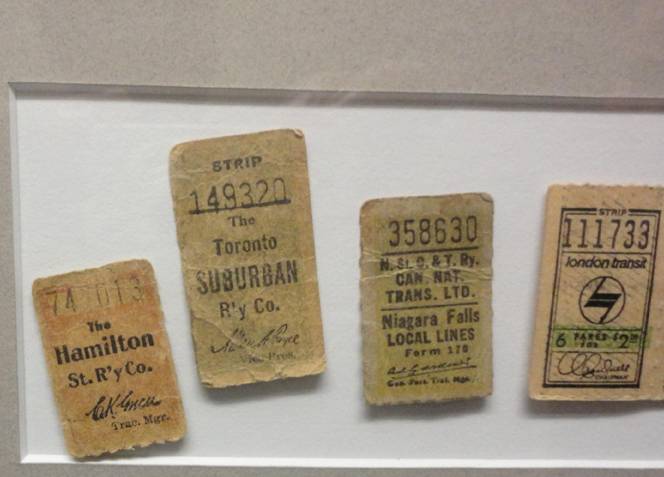 The
Hamilton
St. R'y Co.
Trac. Mgr.
STRIP
149320
The
Toronto
SUBURBAN
R'y Co.
Vice Pres.
358630
N. St. C. & T. Ry.
CAN. NAT.
TRANS. LTD.
Niagara Falls
LOCAL LINES
Form 170
Gen. Pass. Traf. Mgr.
STRIP
111733
london transit
6 FARES FOR
CHAIRMAN